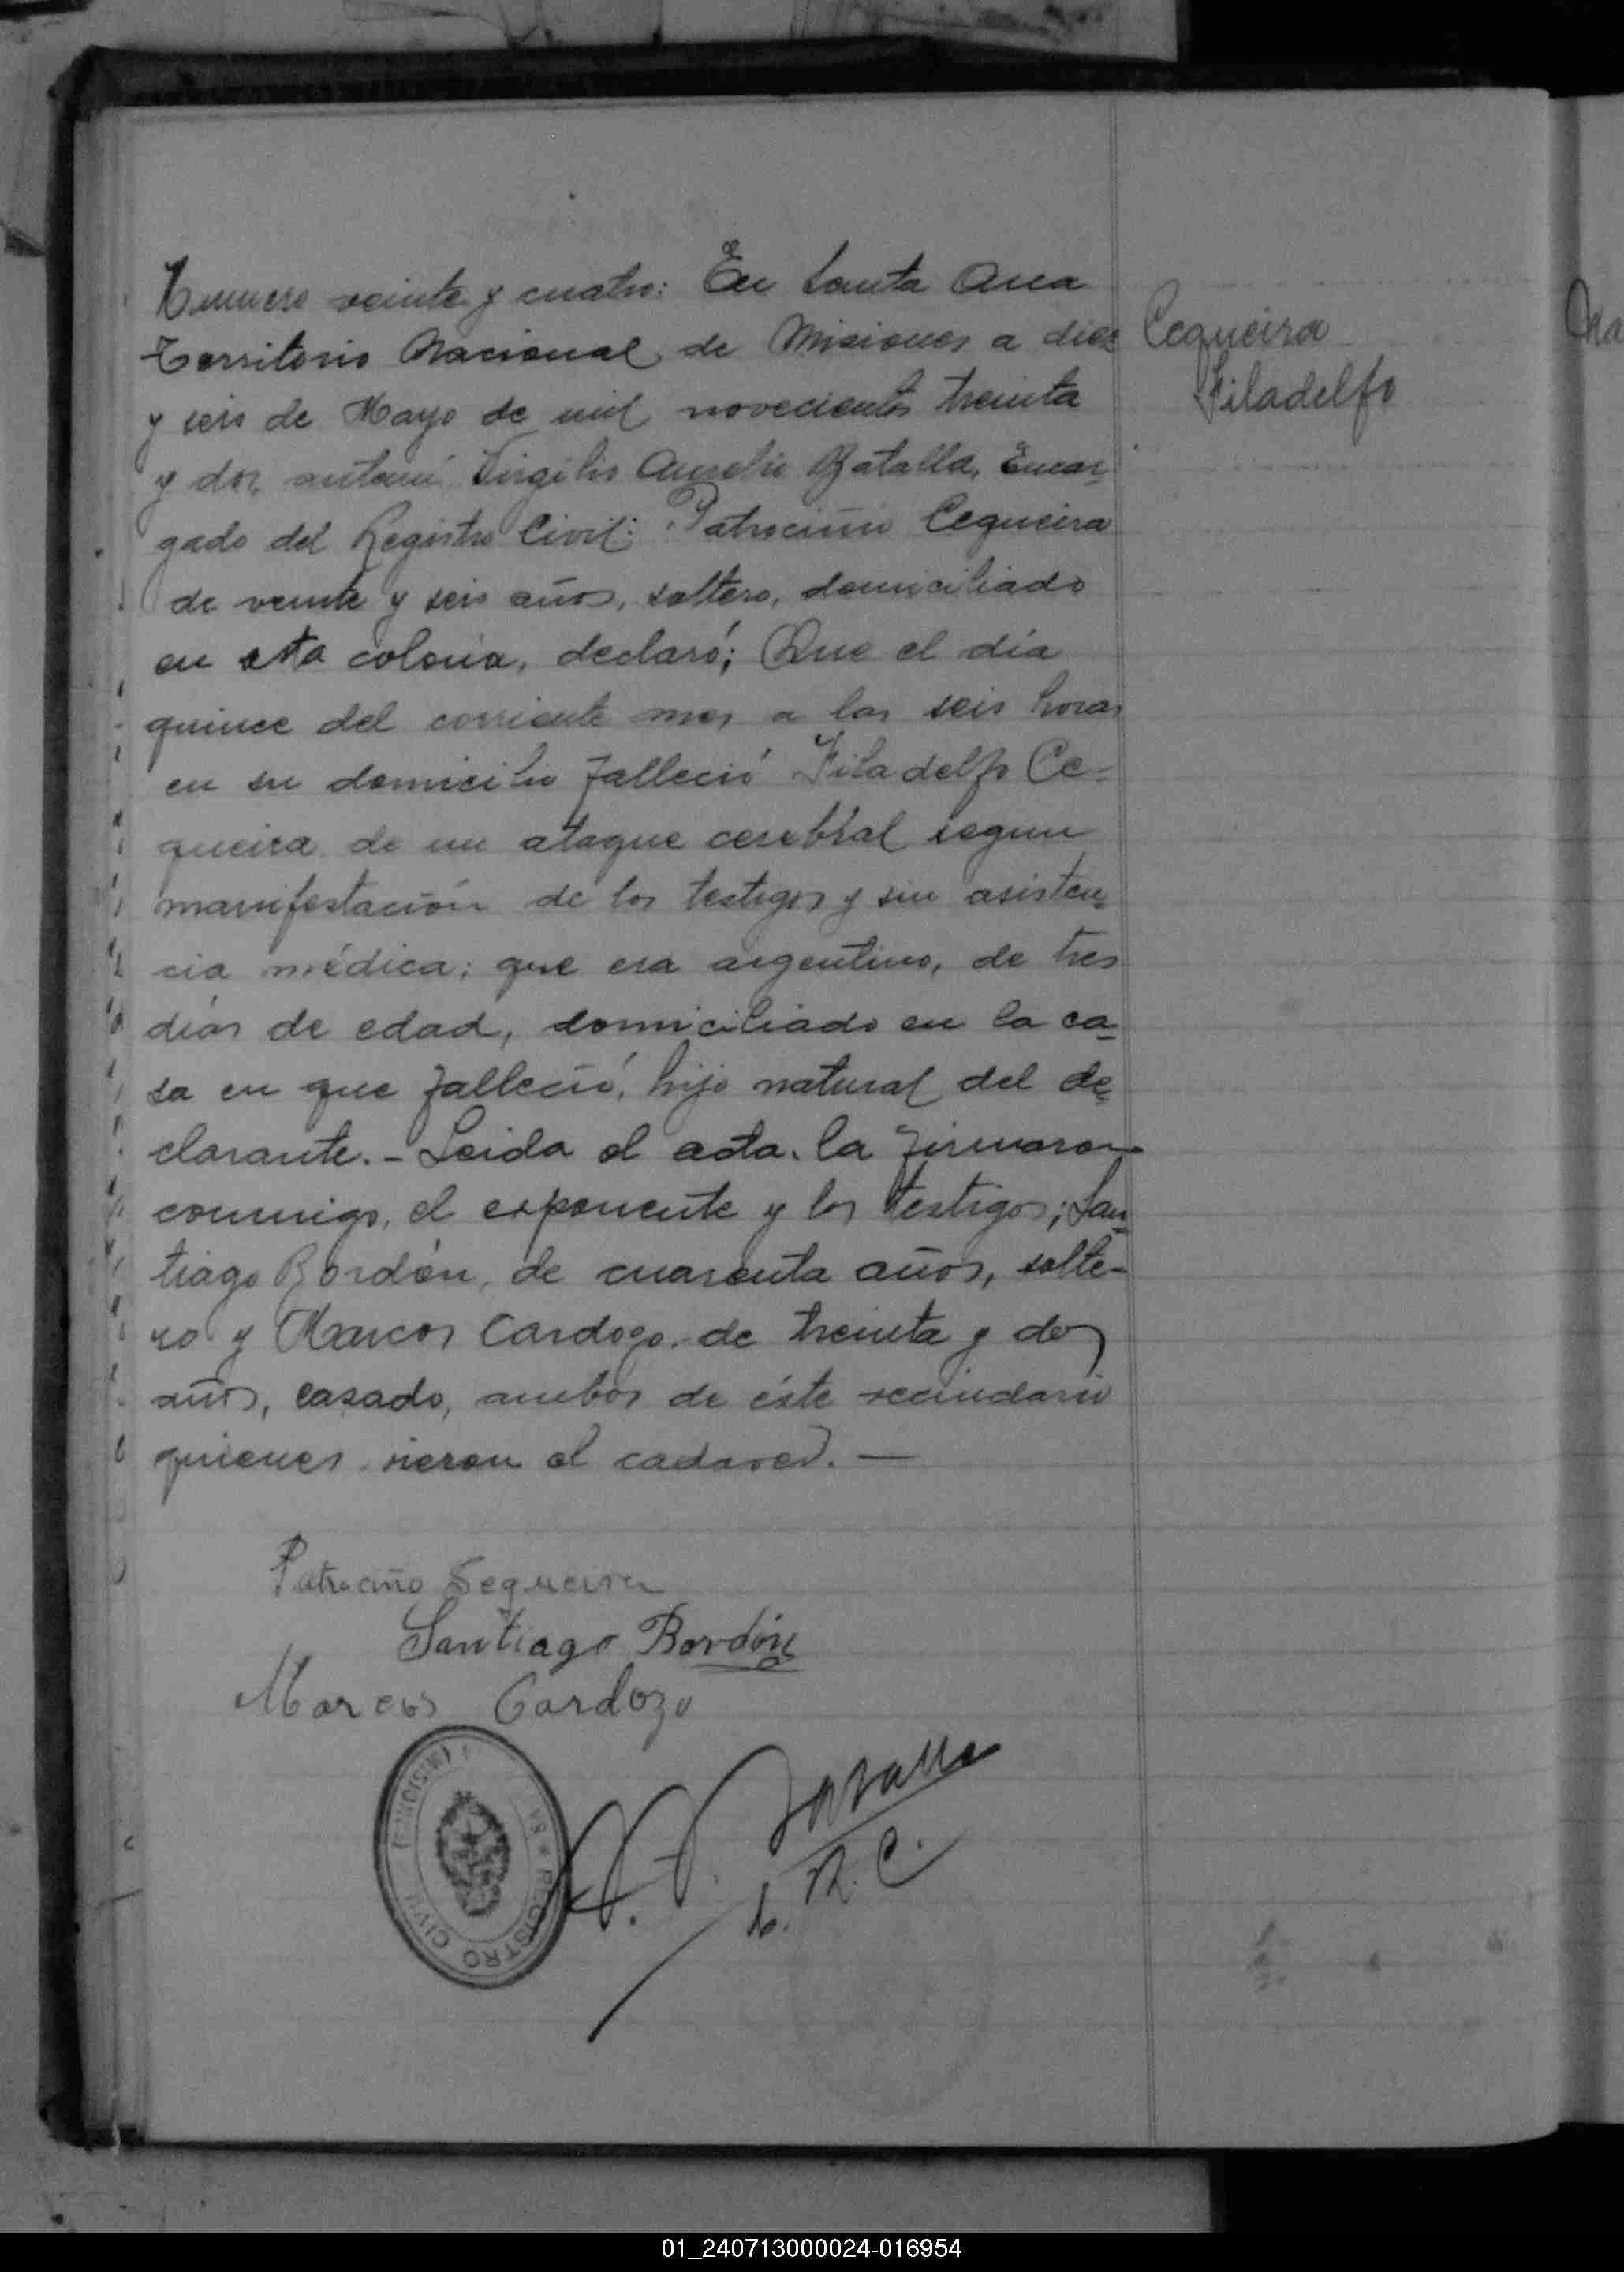 Numero veinte y cuatro: En Santa Ana
Territorio Nacional de Misiones a diez
y seis de Mayo de mil novecientos treinta
y dos, antemi Virgilio Aurelio Batalla, Encar-
gado del Registro Civil: Patrocinio Cequeira
de veinte y seis años, soltero, domiciliado
en esta colonia, declaró; Que el día
quince del corriente mes a las seis horas
en su domicilio falleció Filadelfo Ce-
queira de un ataque cerebral segun
manifestación de los testigos y sin asisten-
cia médica; que era argentino, de tres
días de edad, domiciliado en la ca-
sa en que falleció, hijo natural del de-
clarante.- Leida el acta, la firmaron
conmigo, el exponente y los testigos; San-
tiago Bordón, de cuarenta años, solte-
ro y Marcos Cardozo de treinta y dos
años, casado, ambos de éste vecindario
quienes vieron el cadaver. —
Cequeira
Filadelfo
Patrociño Sequeira
Santiago Bordón
Marcos Cardozo
REGISTRO CIVIL (MISIONES)
Batalla
R. C.
01_240713000024-016954